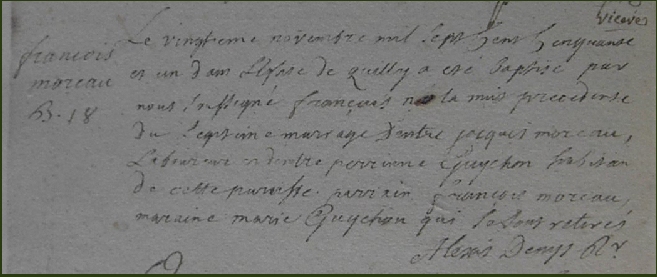 vicaires
françois
moreau
B. 18
Le vingtieme novembre mil sept Cent Cinquante
et un dans L'Esglise de Quilly a esté Baptisé par
nous soussigné françois né la nuit precedente
du Legitime mariage D'entre jacques moreau,
Laboureur et d'entre perrinne Guychon habitan
de cette paroisse. parrain françois moreau,
maraine marie Guychon qui se sont retirés
Alexis Denys